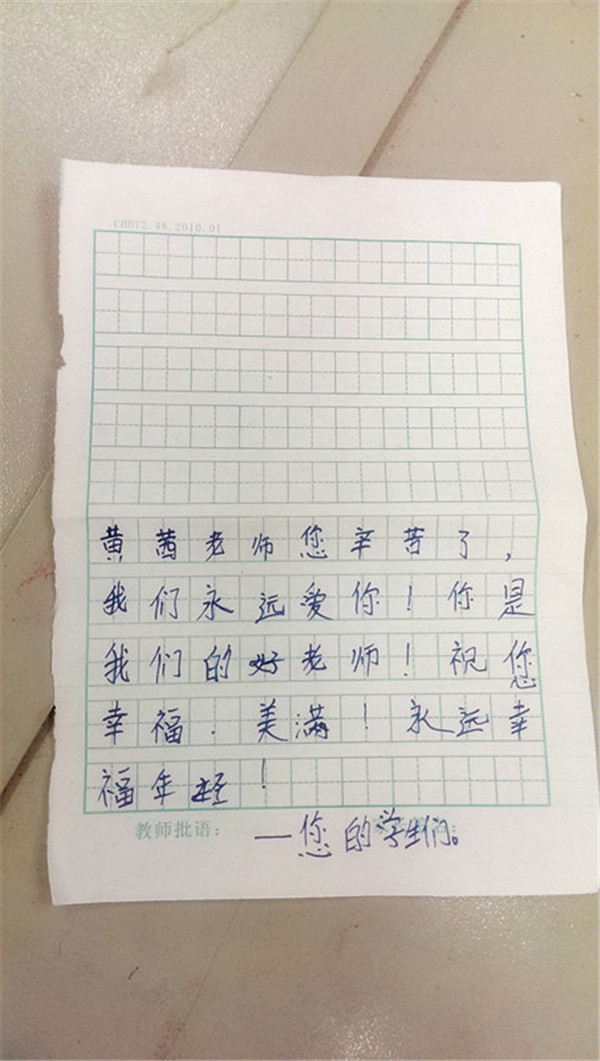 CH072.48.2010.01
黄茜老师您辛苦了，
我们永远爱你！你是
我们的好老师！祝您
幸福．美满！永远幸
福年轻！
教师批语：
—您的学生们。